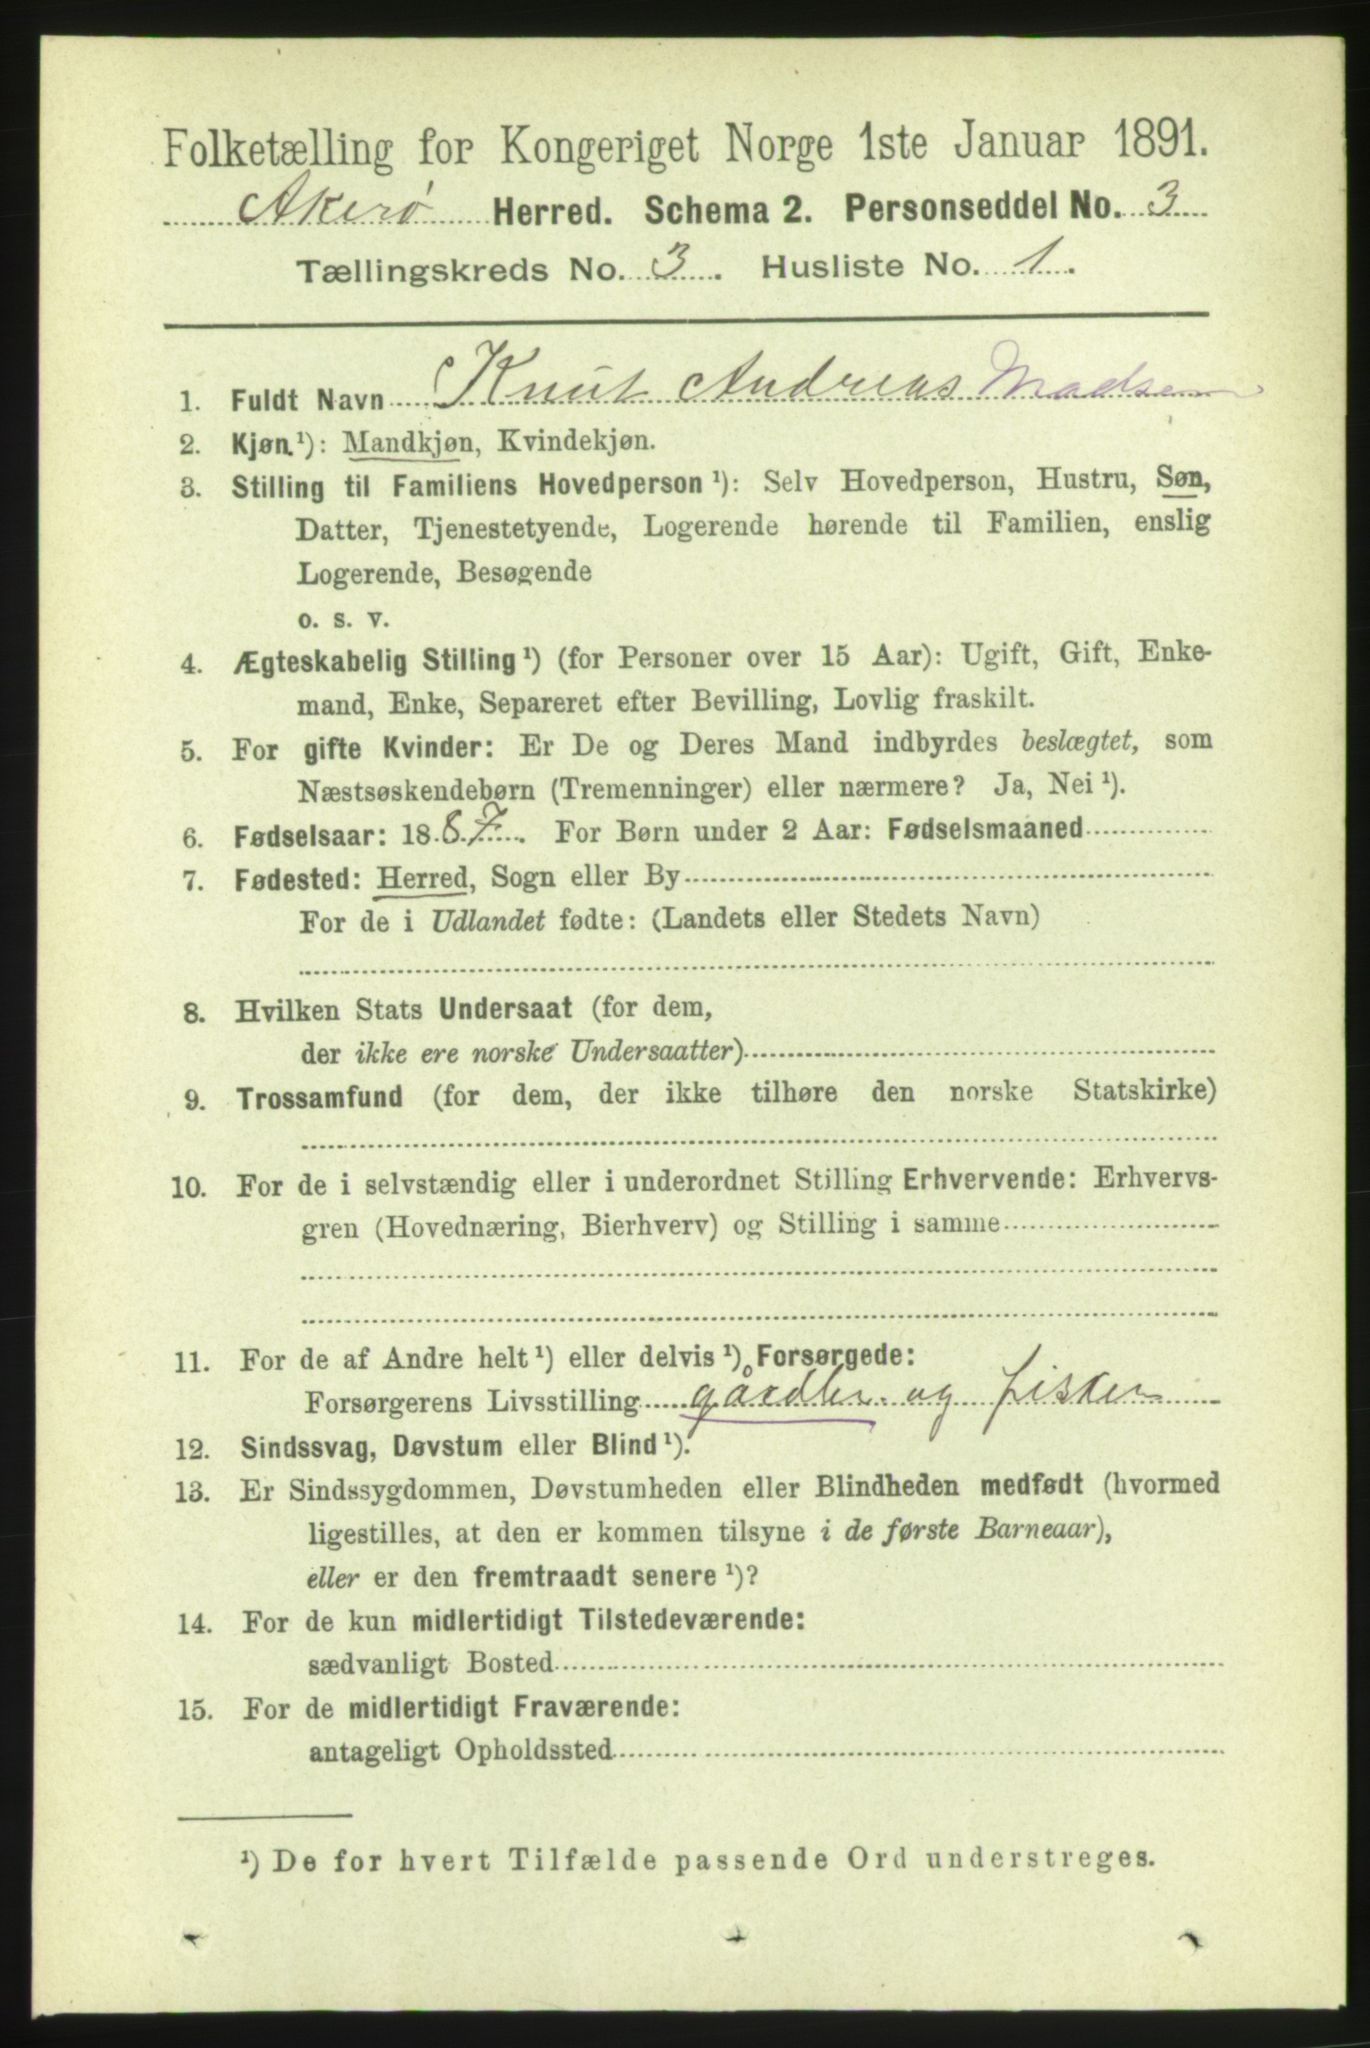 Folketælling for Kongeriget Norge 1ste Januar 1891.
Akerø Herred. Schema 2. Personseddel No. 3
Tællingskreds No. 3. Husliste No. 1.
1. Fuldt Navn Knut Andreas Madsen
2. Kjøn.¹): Mandkjøn, Kvindekjøn.
3. Stilling til Familiens Hovedperson¹): Selv Hovedperson, Hustru, Søn,
Datter, Tjenestetyende, Logerende hørende til Familien, enslig
Logerende, Besøgende
o. s. v.
4. Ægteskabelig Stilling¹) (for Personer over 15 Aar): Ugift, Gift, Enke-
mand, Enke, Separeret efter Bevilling, Lovlig fraskilt.
5. For gifte Kvinder: Er De og Deres Mand indbyrdes beslægtet, som
Næstsøskendebørn (Tremenninger) eller nærmere? Ja, Nei¹).
6. Fødselsaar: 1887. For Børn under 2 Aar: Fødselsmaaned
7. Fødested: Herred, Sogn eller By
For de i Udlandet fødte: (Landets eller Stedets Navn)
8. Hvilken Stats Undersaat (for dem,
der ikke ere norske Undersaatter)
9. Trossamfund (for dem, der ikke tilhøre den norske Statskirke)
10. For de i selvstændig eller i underordnet Stilling Erhvervende: Erhvervs-
gren (Hovednæring, Bierhverv) og Stilling i samme
11. For de af Andre helt¹) eller delvis¹) Forsørgede:
Forsørgerens Livsstilling gårdbr. og fisker
12. Sindssvag, Døvstum eller Blind¹).
13. Er Sindssygdommen, Døvstumheden eller Blindheden medfødt (hvormed
ligestilles, at den er kommen tilsyne i de første Barneaar),
eller er den fremtraadt senere¹)?
14. For de kun midlertidigt Tilstedeværende:
sædvanligt Bosted
15. For de midlertidigt Fraværende:
antageligt Opholdssted
¹) De for hvert Tilfælde passende Ord understreges.